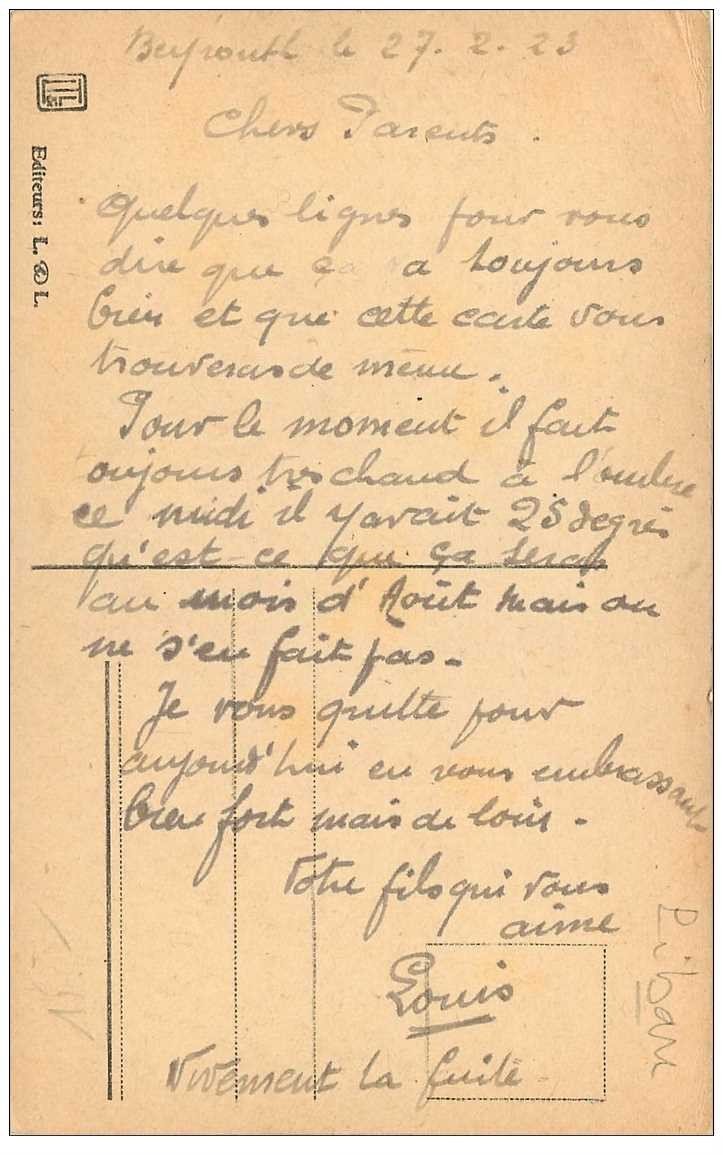 Beyrouth le 27. 2. 23
Chers Parents.
Quelques lignes pour vous
dire que ça va toujours
bien et que cette carte vous
trouveras de même.
Pour le moment il fait
toujours très chaud à l'ombre
ce midi il y avait 25 degrés
qu'est-ce que ça seras
au mois d'Août mais on
ne s'en fait pas.
Je vous quitte pour
aujourd'hui en vous embrassant
bien fort mais de loin.
Votre fils qui vous
aime
Louis
Vivement la
Editeurs: L. L.
Liban